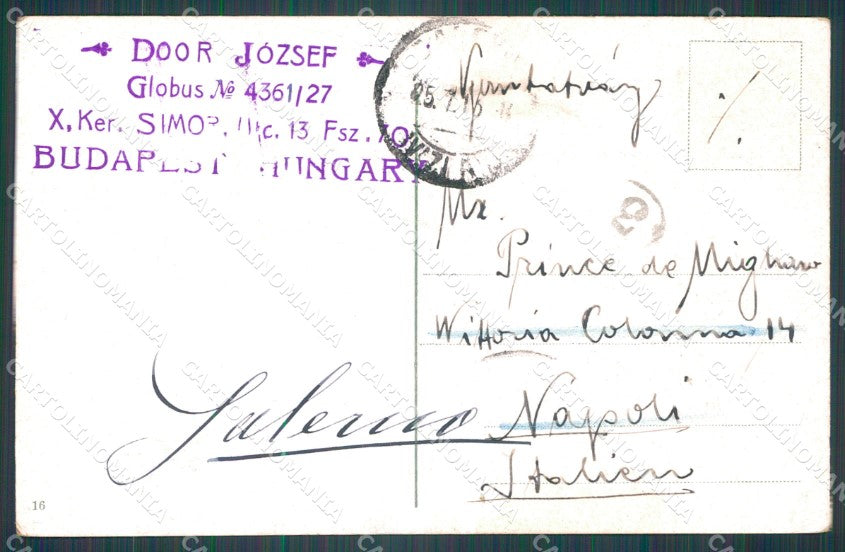 DOOR JÓZSEF
Globus № 4361/27
X, Ker. SIMOR. 13 Fsz. 10
BUDAPEST HUNGARY
Nyomtatvány
Mr.
Prince de Migliano
Vittoria Colonna 14
Napoli
Italien
Salerno
16
CARTOLINOMANIA